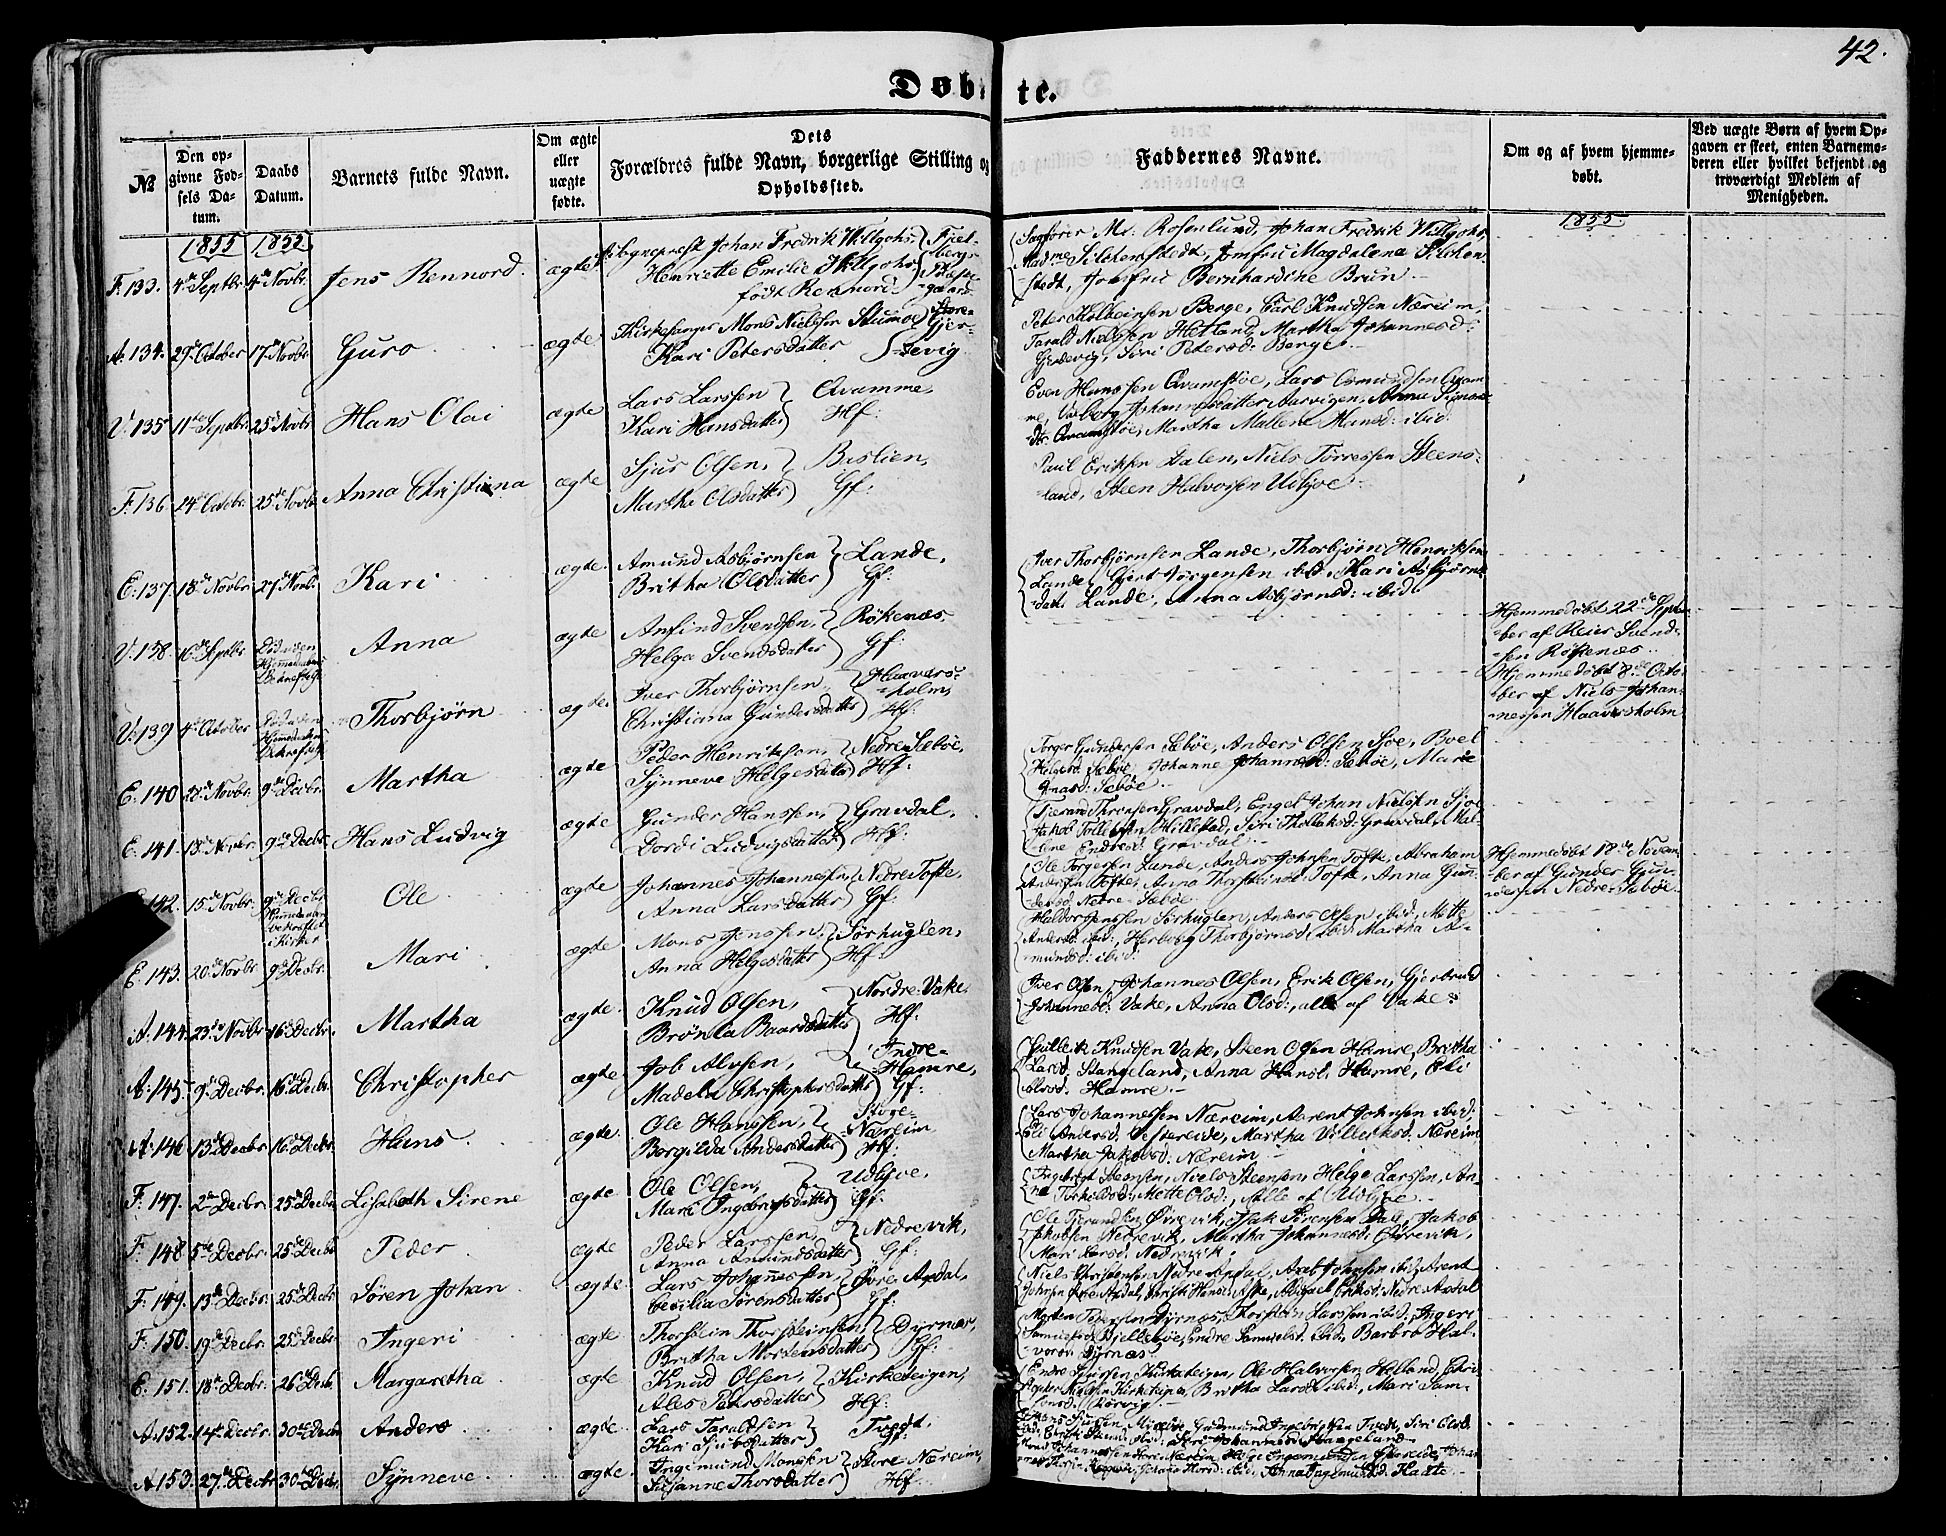 42.
Døbte.
№
Den opgivne Fødsels Datum.
Daabs Datum.
Barnets fulde Navn.
Om ægte eller uægte fødte.
Dets Forældres fulde Navn, borgerlige Stilling og Opholdssted.
Faddernes Navne.
Om og af hvem hjemmedøbt.
Ved uægte Børn af hvem Opgaven er skeet, enten Barnemoderen eller hvilket bekjendt og troværdigt Medlem af Menigheden.
1855 1855
1855
F. 133. 4de Septbr 4de Novbr. Jens Rennord. ægte Johan Fredrik Willgohs Henriette Emilie Willgohs født Rennord Fjelbergs Præstegaard
Sagfører M. Rosenlund, Johan Fredrik Willgohs, Madme Silchenstedt, Jomfru Magdalena Silchenstedt, Jomfru Bernhardine Brun
A. 134. 29de October 17de Novbr Guro ægte Kirkesanger Mons Nielssen Kari Petersdatter
Berge, Carl Knudsen Næreim, Tarald Nielssen Hetland, Martha Johannesd: Gjerdevig, Siri Petersd: Berge
V. 135 11te Septbr 25de Novbr. Hans Olai ægte Lars Larssen Kari Hansdatter Qvamme, Hf:
Even Hanssen Qvamstøe, Lars Osmundsen Qvamme, Johannesdatter Aarvigen, Anna Qvamstøe, Martha Mallene Hansd: ibid:
F. 136 24de Octobr. 25de Novbr Anna Christiana ægte Sjur Olsen, Martha Olsdatter Bislien, Gf:
Paul Eriksen Dalen, Niels Torressen Steensland, Steen Halvorsen Utbjoe
E. 137 18de Novbr. 27de Novbr. Kari ægte. Amund Asbjørnsen Britha Olsdatter Lande, Gf:
Iver Thorbjørnsen Lande, Thorbjørn Henriksen Lande, Gjert Jørgensen ibid, Kari Asbjørnsdatr Lande, Anna Asbjørnsd: ibid.
V. 138. 16de Septbr. Anna ægte Anfind Svendsen, Helga Svendsdatter Røkenæs, Gf:
Hjemmedøbt 22de September af Reier Svendsen Røkenæs.
V. 139 4de October Thorbjørn ægte. Iver Thorbjørnsen Christiana Gundersdatter Haaversholm, Hf:
Hjemmedøbt 8de October af Niels Johannessen Haaversholm
E. 140 22de Novbr. 9de Decbr. Martha ægte Peder Henriksen, Synneve Helgesdatter Nedre Sæbøe, Hf:
Torger Gundersen Sæbøe, Anders Olsen Sjoe, Boel Helgesd: Sæbøe, Johanne Johannesd: Sæbøe, Marie Sæbøe
E. 141. 18de Novbr. 9de Decbr. Hans Ludvig ægte Gunder Hanssen, Dordi Ludvigsdatter Gravdal, Hf:
Gravdal, Engel Johan Nielsen Sjoe, Jakob Tollefsen Hillestad, Siri Gravdal, Malene Endresd: Gravdal
E. 142. 15de Novbr. 9de Decbr Hjemmedaaben bekræftet i Kirken Ole ægte Johannes Johannessen Anna Larsdatter Nedre Tofte, Gf:
Ole Torgersen Lande, Anders Johnsen Tofte, Abraham Andersen Tofte, Anna Thorsteinsd: Tofte, Anna Gundersd: Nedre Sæbøe
Hjemmedøbt 18de November af Gunder Gundersen Nedre Sæbøe
E. 143. 20de Novbr. 9de Decbr. Mari ægte Mons Jenssen, Anna Helgesdatter Sørhuglen, Hf:
Haldor Jenssen Sørhuglen, Anders Olsen ibid, Mette Andersd: ibid, Herborg Thorbjørnsd: ibid: Martha Amundsd: ibid:
A. 144. 23de Novbr 16de Decbr. Martha ægte. Knud Olsen, Brønla Baardsdatter Nordre Vake, Hf:
Iver Olsen, Johannes Olsen, Erik Olsen, Gjertrud Johannesd: Vake, Anna Olsd:, alle af Vake
A. 145 9de Decbr. 16de Decbr. Christopher ægte Job Alvsen, Madela Christophersdatter Indre-Hamre, Gf:
Knudsen Vake, Steen Olsen Hamre, Britha Larsd: Stangeland, Anna Hansd: Hamre, Hamre
A. 146 13de Decbr. 16de Decbr. Hans ægte Ole Hanssen, Borgilda Andersdatter Store Næreim, Hf:
Lars Johannessen Næreim, Aarent Johnsen ibid: Eli Andersd: Vestereide, Martha Villeiksd: Næreim, Martha Jakobsd: Næreim
F. 147. 2den Decbr. 25de Decbr. Lisabeth Sirene ægte Ole Olsen, Mari Ingebrigtsdatter Utbjoe, Gf:
Steensen, Niels Steensen, Helge Larssen, Anna Torkildsd: Mette Olsd:, Alle af Utbjoe
F. 148 5te Decbr. 25de Decbr Peder ægte Peder Larssen, Anna Amundsdatter Nedrevik, Gf:
Ole Tjerandsen Øvrevik, Isak Sørensen Dal, Jakob Jakobsen Nedrevik, Martha Johannesd: Øvrevik, Mari Larsd: Nedrevik
F. 149. 13de Decbr. 25de Decbr Søren Johan ægte. Lars Johannessen, Cecilia Sørensdatter Øvre Axdal, Gf:
F. 150. 19de Decbr. 25de Decbr Ingeri ægte Thorstein Thorsteinsen, Britha Mortensdatter Dyrnæs, Gf:
Morten Dyrnæs, Thorstein Larssen ibid: Ingeri Bjelleloe, Endre Samuelsen ibid, Barbro Halvorsd: Dyrnæs
E. 151. 18de Decbr. 26de Decbr. Margaretha ægte Knud Olsen, Ales Petersdatter Kirketeigen, Hf:
Endre Sjursen Kirketeigen, Ole Halvorsen Helland, Kirketeigen, Britha Larsd: ibid, Mari
A. 152. 14de Decbr. 30te Decbr Anders ægte. Lars Taraldsen Kari Sjursdatter Tvedt, Gf:
A 153. 27de Decbr 30te Decbr. Synneve ægte Ingemund Monssen Susanne Thorsdatter Store Næreim, Hf: